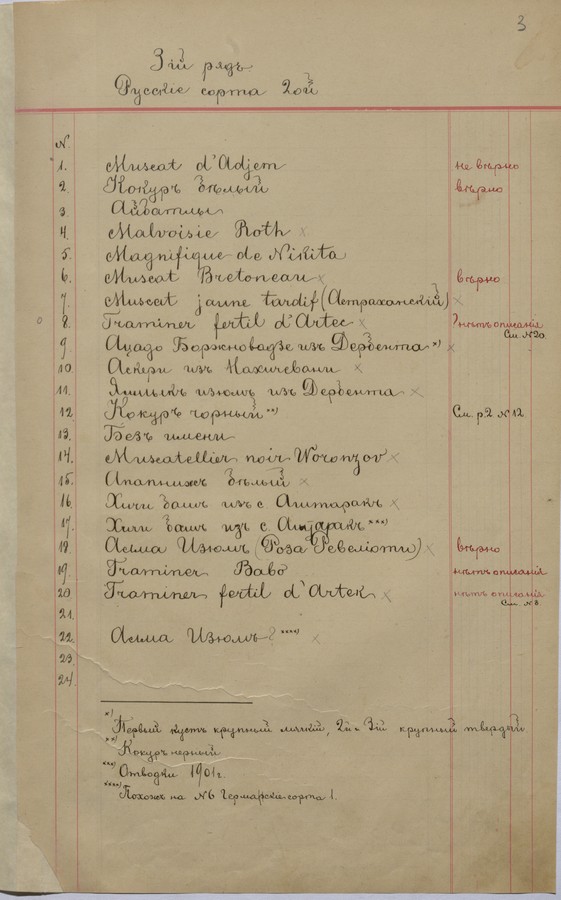 3
3ій рядъ
Русскіе сорта 2ой
N.
1. Muscat d'Adjem не вѣрно
2. Кокуръ бѣлый вѣрно
3 Айбатлы
4. Malvoisie Roth ×
5. Magnifique de Nikita
6. Muscat Bretoneau × вѣрно
7. Muscat jaune tardif (Астраханскій) ×
8. Traminer fertil d'Artec × ?нѣтъ описанія
См. №20.
9 Ацадо Боржновадзе изъ Дербента *) ×
10 Аскери изъ Нахичевани ×
11. изюмъ изъ Дербента ×
12 Кокуръ чорный **) См. р.2 N12.
13. Безъ имени
14. Muscatellier noir Woronzov ×
15. Апапнихъ бѣлый ×
16. Хичи башъ изъ с Аштаракъ ×
17. Хичи башъ изъ с. Аштаракъ ***)
18. Асма Изюмъ (Роза Ревеліоти) × вѣрно
19. Traminer Babo нѣтъ описанія
20 Traminer fertil d'Artek × нѣтъ описанія
См. N 8.
21.
22. Асма Изюмъ? ****) ×
23
24.
*) Первый кустъ крупный мягкій, 2й и 3ій крупный твердый
**) Кокуръ черный
***) Отводки 1901г.
****) Похожъ на N6 сорта 1.